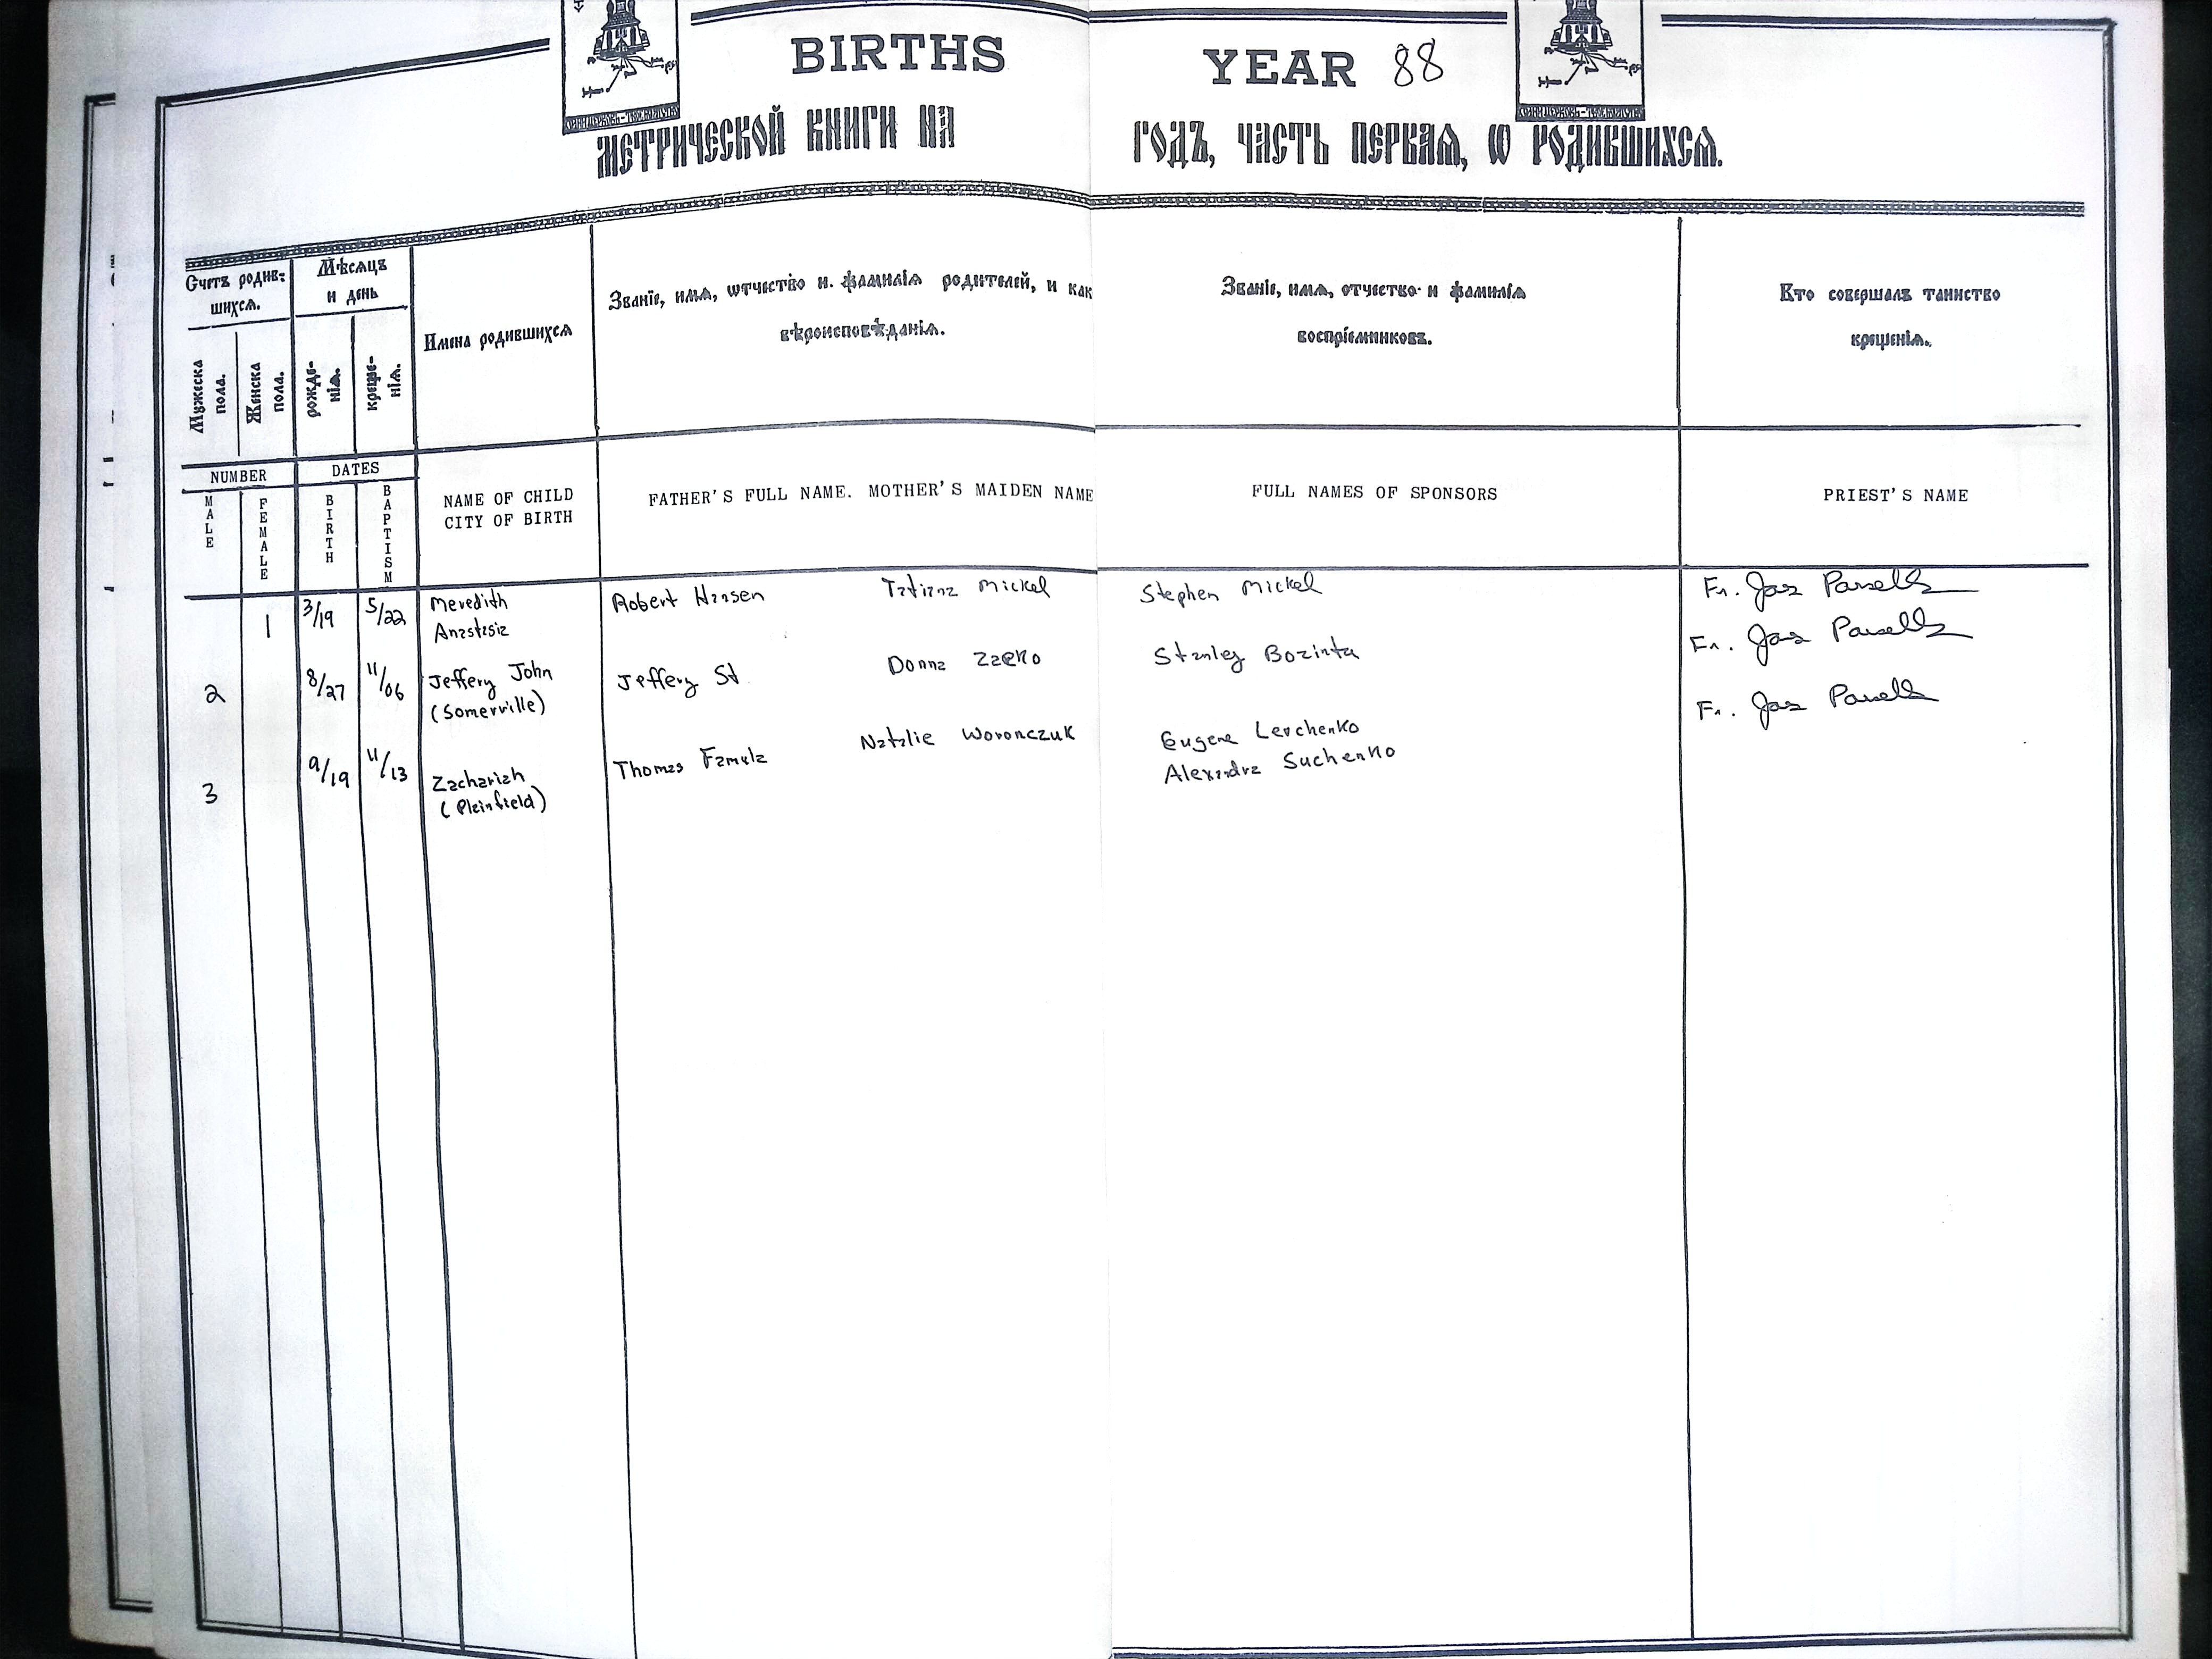 BIRTHS YEAR 88
МЕТРИЧЕСКОЙ КНИГИ НА ГОДЪ, ЧАСТЬ ПЕРВАЯ, Ѡ РОДИВШИХСЯ.
Счетъ родив-
шихся.
Мѣсяцъ
и день
Мужеска пола.
Женска пола.
рожде-
нія.
креще-
нія.
Имена родившихся
Званіе, имя, ѡтчество и фамилія родителей, и как
вѣроисповѣданія.
Званіе, имя, отчество и фамилія
воспріемниковъ.
Кто совершалъ таинство
крещенія.
NUMBER
MALE
FEMALE
DATES
BIRTH
BAPTISM
NAME OF CHILD
CITY OF BIRTH
FATHER'S FULL NAME. MOTHER'S MAIDEN NAME
FULL NAMES OF SPONSORS
PRIEST'S NAME
1 3/19 5/22 Meredith Robert Hansen Tatiana Mickel Stephen Mickel Fr. Jas Parsells
Anastasia
2 8/27 11/06 Jeffery John Jeffery St Donna Zaeko Stanley Bozinta Fr. Jas Parsells
(Somerville)
3 9/19 11/13 Zachariah Thomas Famula Natalie Woronczuk Eugene Levchenko Fr. Jas Parsells
(Plainfield) Alexandra Suchenko